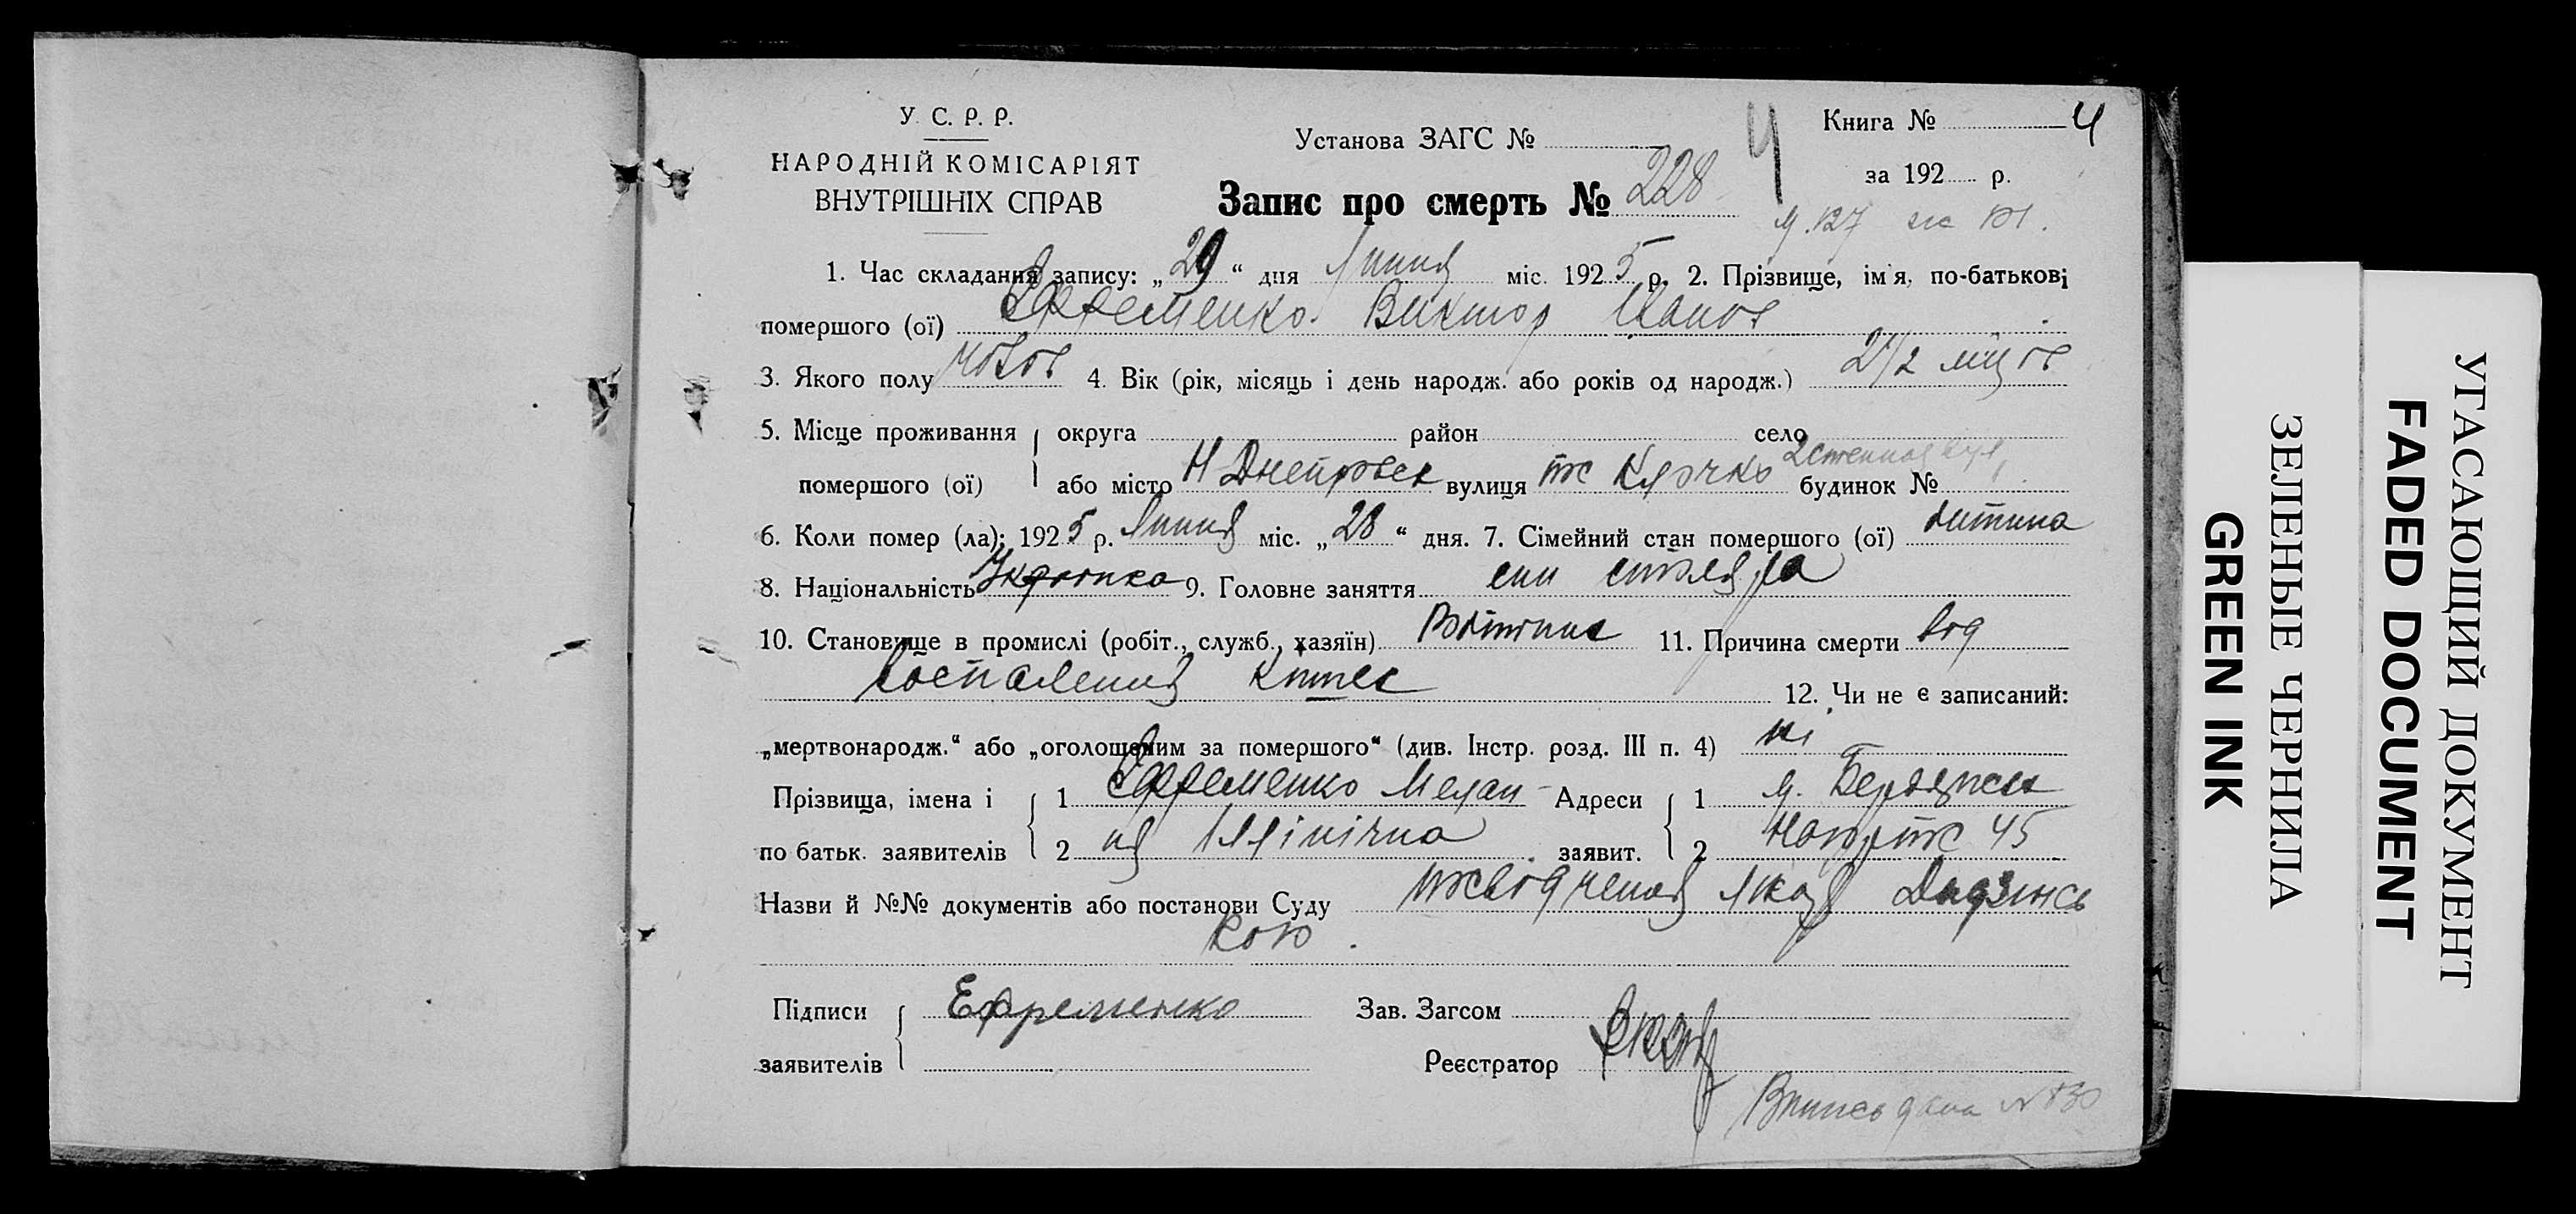 У. С. Р. Р.
НАРОДНІЙ КОМІСАРІЯТ
ВНУТРІШНІХ СПРАВ
Установа ЗАГС №
Запис про смерть № 228
Книга № 4
за 192 р.
1. Час складання запису: „29“ дня Липня міс. 1925 р. 2. Прізвище, ім'я, по-батькові
помершого (ої) Єфременко Виктор Іванов
3. Якого полу 4. Вік (рік, місяць і день народж. або років од народж.) 2 1/2
5. Місце проживання округа район село
помершого (ої) або місто Н Днепровск вулиця Клочко будинок №
6. Коли помер (ла): 1925 р. Липня міс. „28“ дня. 7. Сімейний стан помершого (ої) дитина
8. Національність 9. Головне заняття син столяра
10. Становище в промислі (робіт., служб., хазяїн) 11. Причина смерти від
воспаления кишек
12. Чи не є записаний:
„мертвонародж.“ або „оголошеним за помершого“ (див. Інстр. розд. III п. 4) ні
Прізвища, імена і 1 Єфременко Мелан- Адреси 1
по батьк. заявителів 2 ія Іллінічна заявит. 2 45
Назви й №№ документів або постанови Суду посвідчення Лікаря
кою.
Підписи Ефременко Зав. Загсом
заявителів Реєстратор
УГАСАЮЩИЙ ДОКУМЕНТ
FADED DOCUMENT
ЗЕЛЕНЫЕ ЧЕРНИЛА
GREEN INK